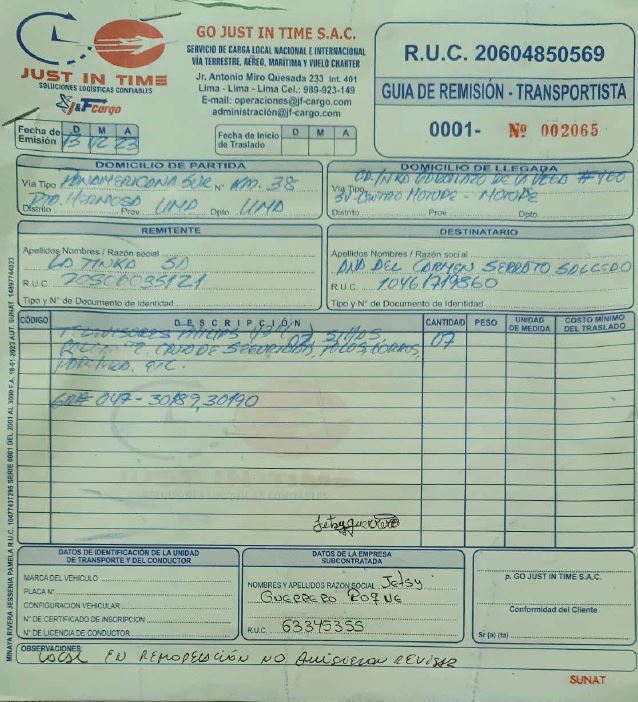 JUST IN TIME
SOLUCIONES LOGÍSTICAS CONFIABLES
J&F cargo
GO JUST IN TIME S.A.C.
SERVICIO DE CARGA LOCAL NACIONAL E INTERNACIONAL
VÍA TERRESTRE, AÉREO, MARÍTIMA Y VUELO CHARTER
Jr. Antonio Miro Quesada 233 Int. 401
Lima - Lima - Lima Cel.: 989-923-149
E-mail: operaciones@jf-cargo.com
administración@jf-cargo.com
R.U.C. 20604850569
GUIA DE REMISIÓN - TRANSPORTISTA
0001- Nº 002065
Fecha de Emisión D M A
23
Fecha de Inicio de Traslado D M A
DOMICILIO DE PARTIDA
Vía Tipo PANAMERICANA SUR N° KM. 38
Distrito Prov LIMA Dpto LIMA
DOMICILIO DE LLEGADA
Vía Tipo DE LA VEGA #400
CENTRO MOTUPE - MOTUPE
Distrito Prov Dpto
REMITENTE
Apellidos Nombres / Razón social
LA TINKA SA
R.U.C. 20506035121
Tipo y N° de Documento de Identidad
DESTINATARIO
Apellidos Nombres / Razón social
ANA DEL CARMEN SERRATO SALCEDO
R.U.C. 10461719360
Tipo y N° de Documento de Identidad
CÓDIGO DESCRIPCIÓN CANTIDAD PESO UNIDAD DE MEDIDA COSTO MÍNIMO DEL TRASLADO
TELEVISORES PHILIPS 02 SILLAS, 07
DE SEGURIDAD, POLOS, GORROS,
ETC.
047 - 30189, 30190
Jetsyguerrero
DATOS DE IDENTIFICACIÓN DE LA UNIDAD
DE TRANSPORTE Y DEL CONDUCTOR
MARCA DEL VEHÍCULO
PLACA N°
CONFIGURACIÓN VEHICULAR
N° DE CERTIFICADO DE INSCRIPCION
N° DE LICENCIA DE CONDUCTOR
DATOS DE LA EMPRESA
SUBCONTRATADA
NOMBRES Y APELLIDOS RAZON SOCIAL Jetsy
GUERRERO ROQUE
R.U.C. 63345355
p. GO JUST IN TIME S.A.C.
Conformidad del Cliente
Sr (a) (ta)
OBSERVACIONES:
LOCAL EN REMODELACIÓN NO QUISIERON REVISAR
SUNAT